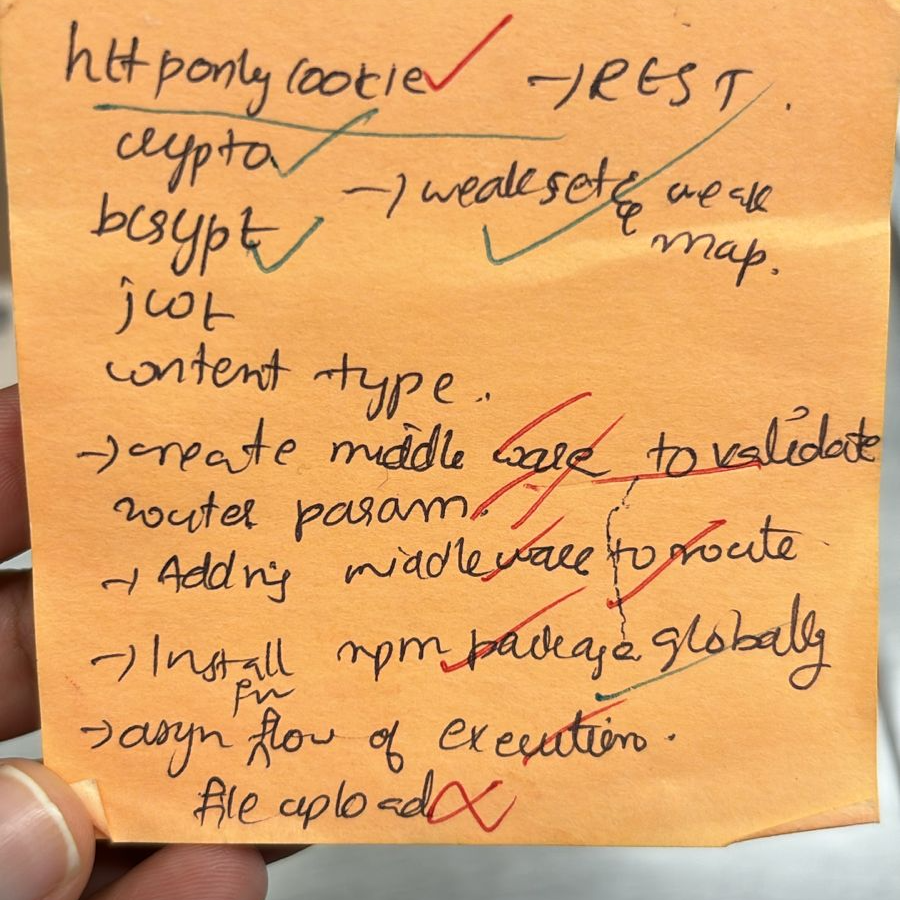 httponly cookie → REST.
crypto
→ weakset & weak
map.
bcrypt
jwt
content type.
→ create middle ware to validate
router param.
→ Adding middleware to route
→ Install npm package globally
fn
→ asyn flow of execution.
file upload